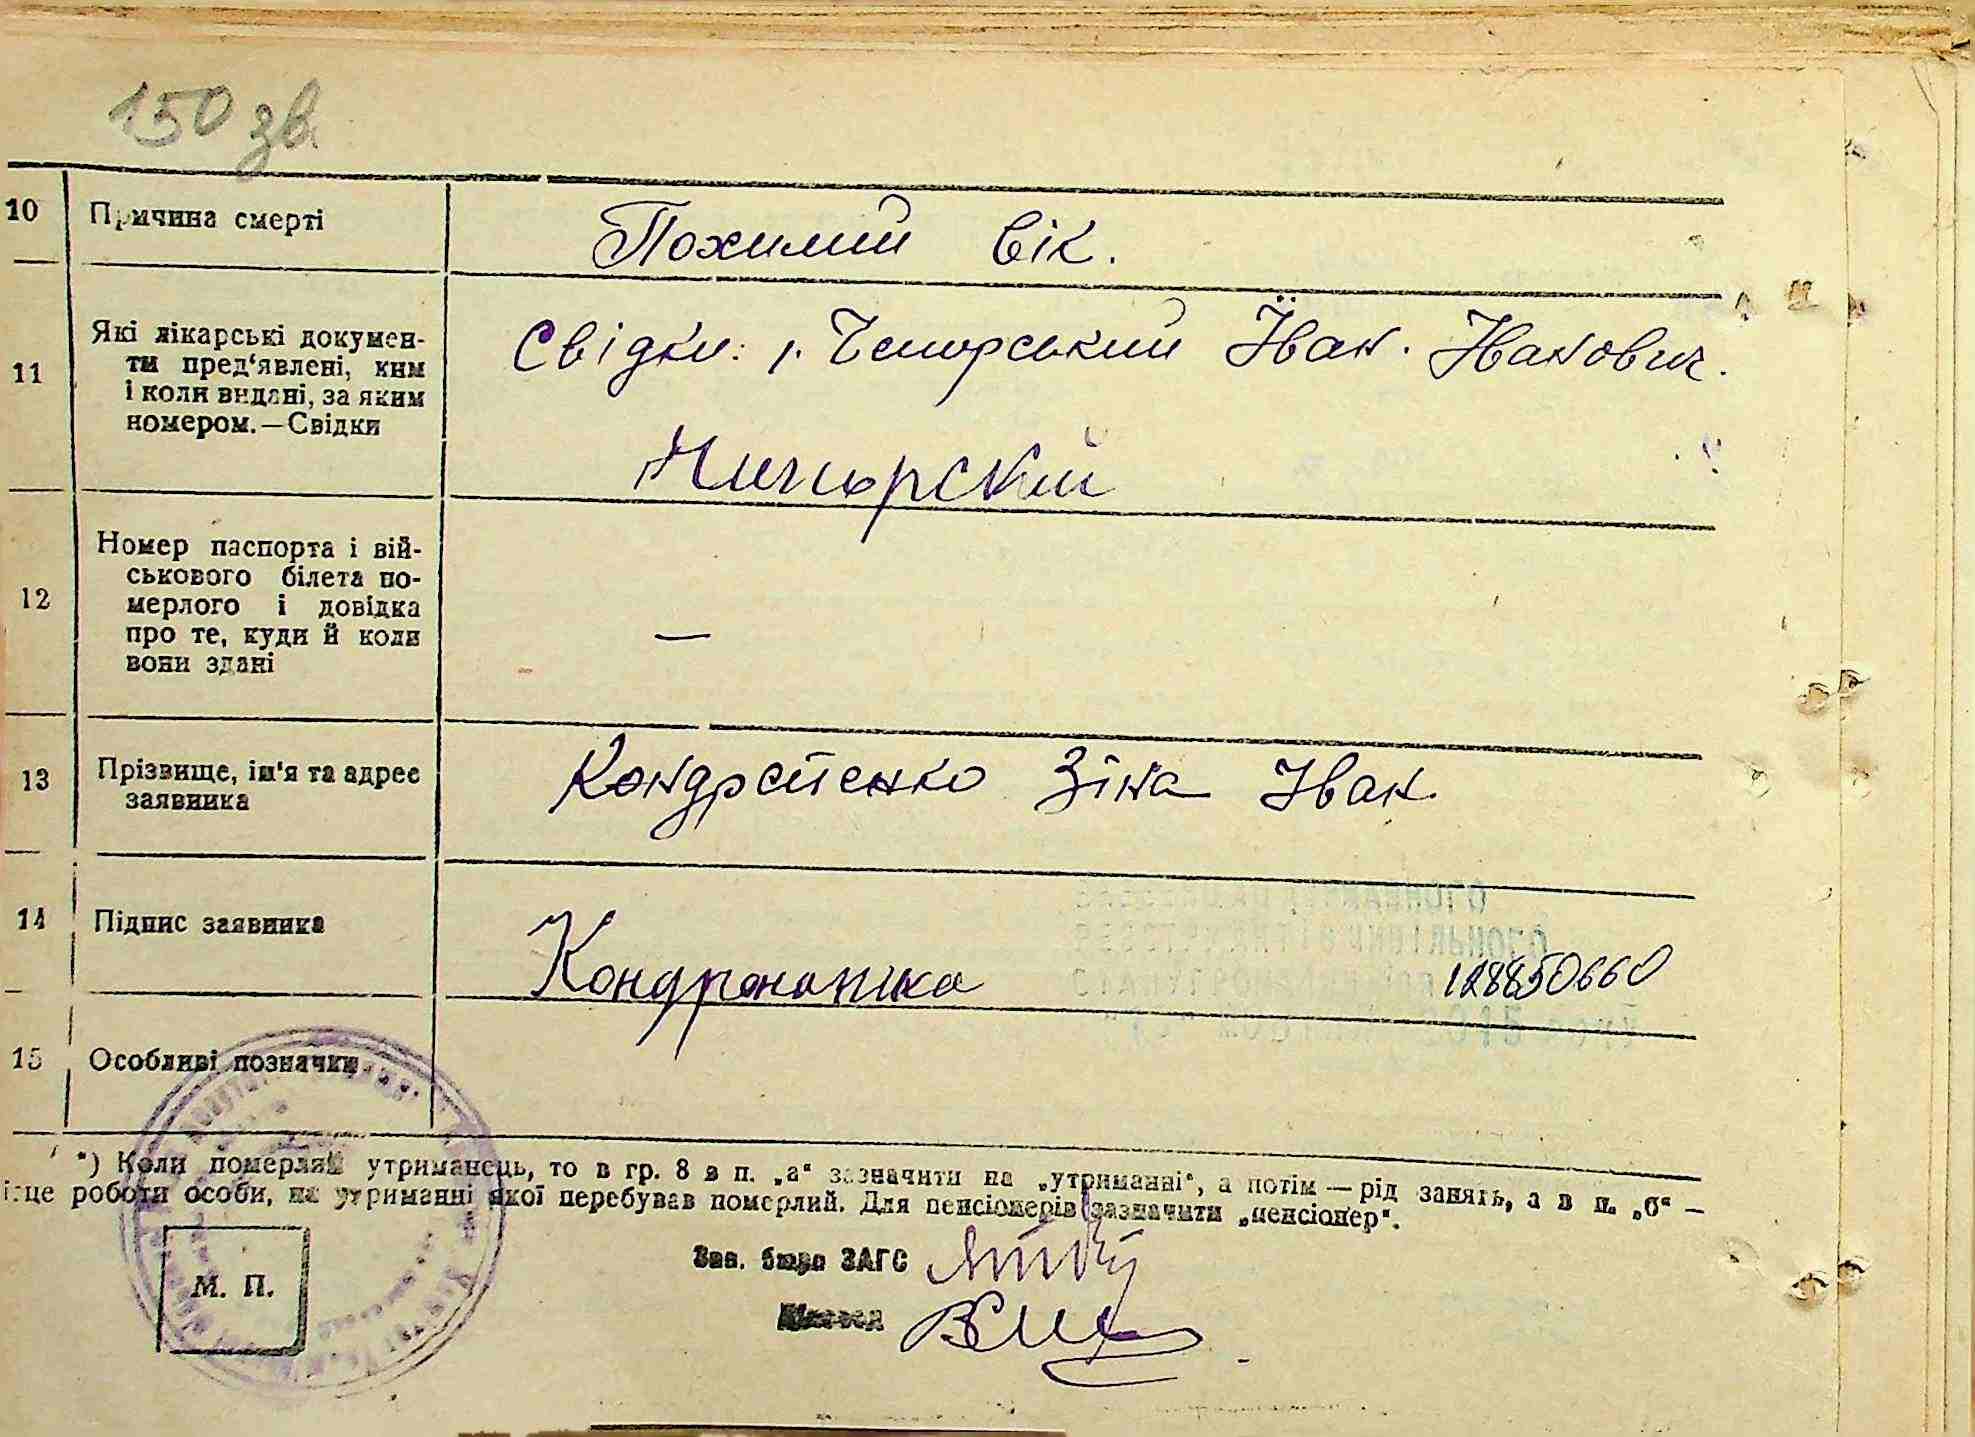 150 зв.
10 Причина смерті Похилий вік.
11 Які лікарські докумен-
ти пред'явлені, ким
і коли видані, за яким
номером.—Свідки
Свідки: 1. Іван. Іванович.
12 Номер паспорта і вій-
ськового білета по-
мерлого і довідка
про те, куди й коли
вони здані
—
13 Прізвище, ім'я та адрес
заявника
Зіна Іван.
14 Підпис заявника
128850660
15 Особливі позначки
*) Коли померлий утриманець, то в гр. 8 в п. „а“ зазначити на „утриманні“, а потім — рід занять, а в п. „б“ —
місце роботи особи, на утриманні якої перебував померлий. Для пенсіонерів зазначити „пенсіонер“.
М. П.
Зав. бюро ЗАГС